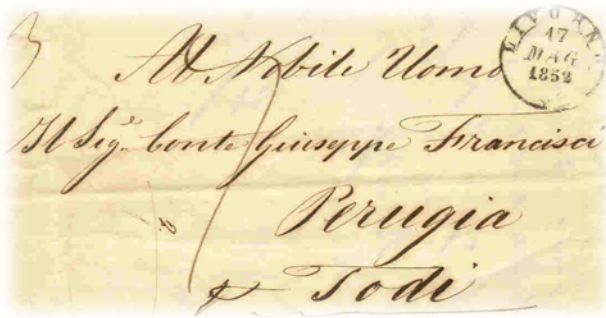 LIVORNO
17
MAG
1852
Al Nobile Uomo
Il Sig.e Conte Giuseppe Francisci
Perugia
p Todi